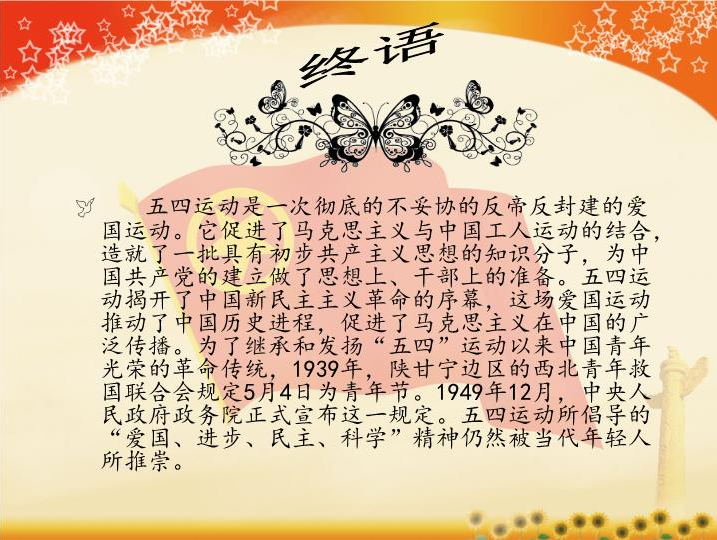 终语
五四运动是一次彻底的不妥协的反帝反封建的爱
国运动。它促进了马克思主义与中国工人运动的结合，
造就了一批具有初步共产主义思想的知识分子，为中
国共产党的建立做了思想上、干部上的准备。五四运
动揭开了中国新民主主义革命的序幕，这场爱国运动
推动了中国历史进程，促进了马克思主义在中国的广
泛传播。为了继承和发扬“五四”运动以来中国青年
光荣的革命传统，1939年，陕甘宁边区的西北青年救
国联合会规定5月4日为青年节。1949年12月，中央人
民政府政务院正式宣布这一规定。五四运动所倡导的
“爱国、进步、民主、科学”精神仍然被当代年轻人
所推崇。